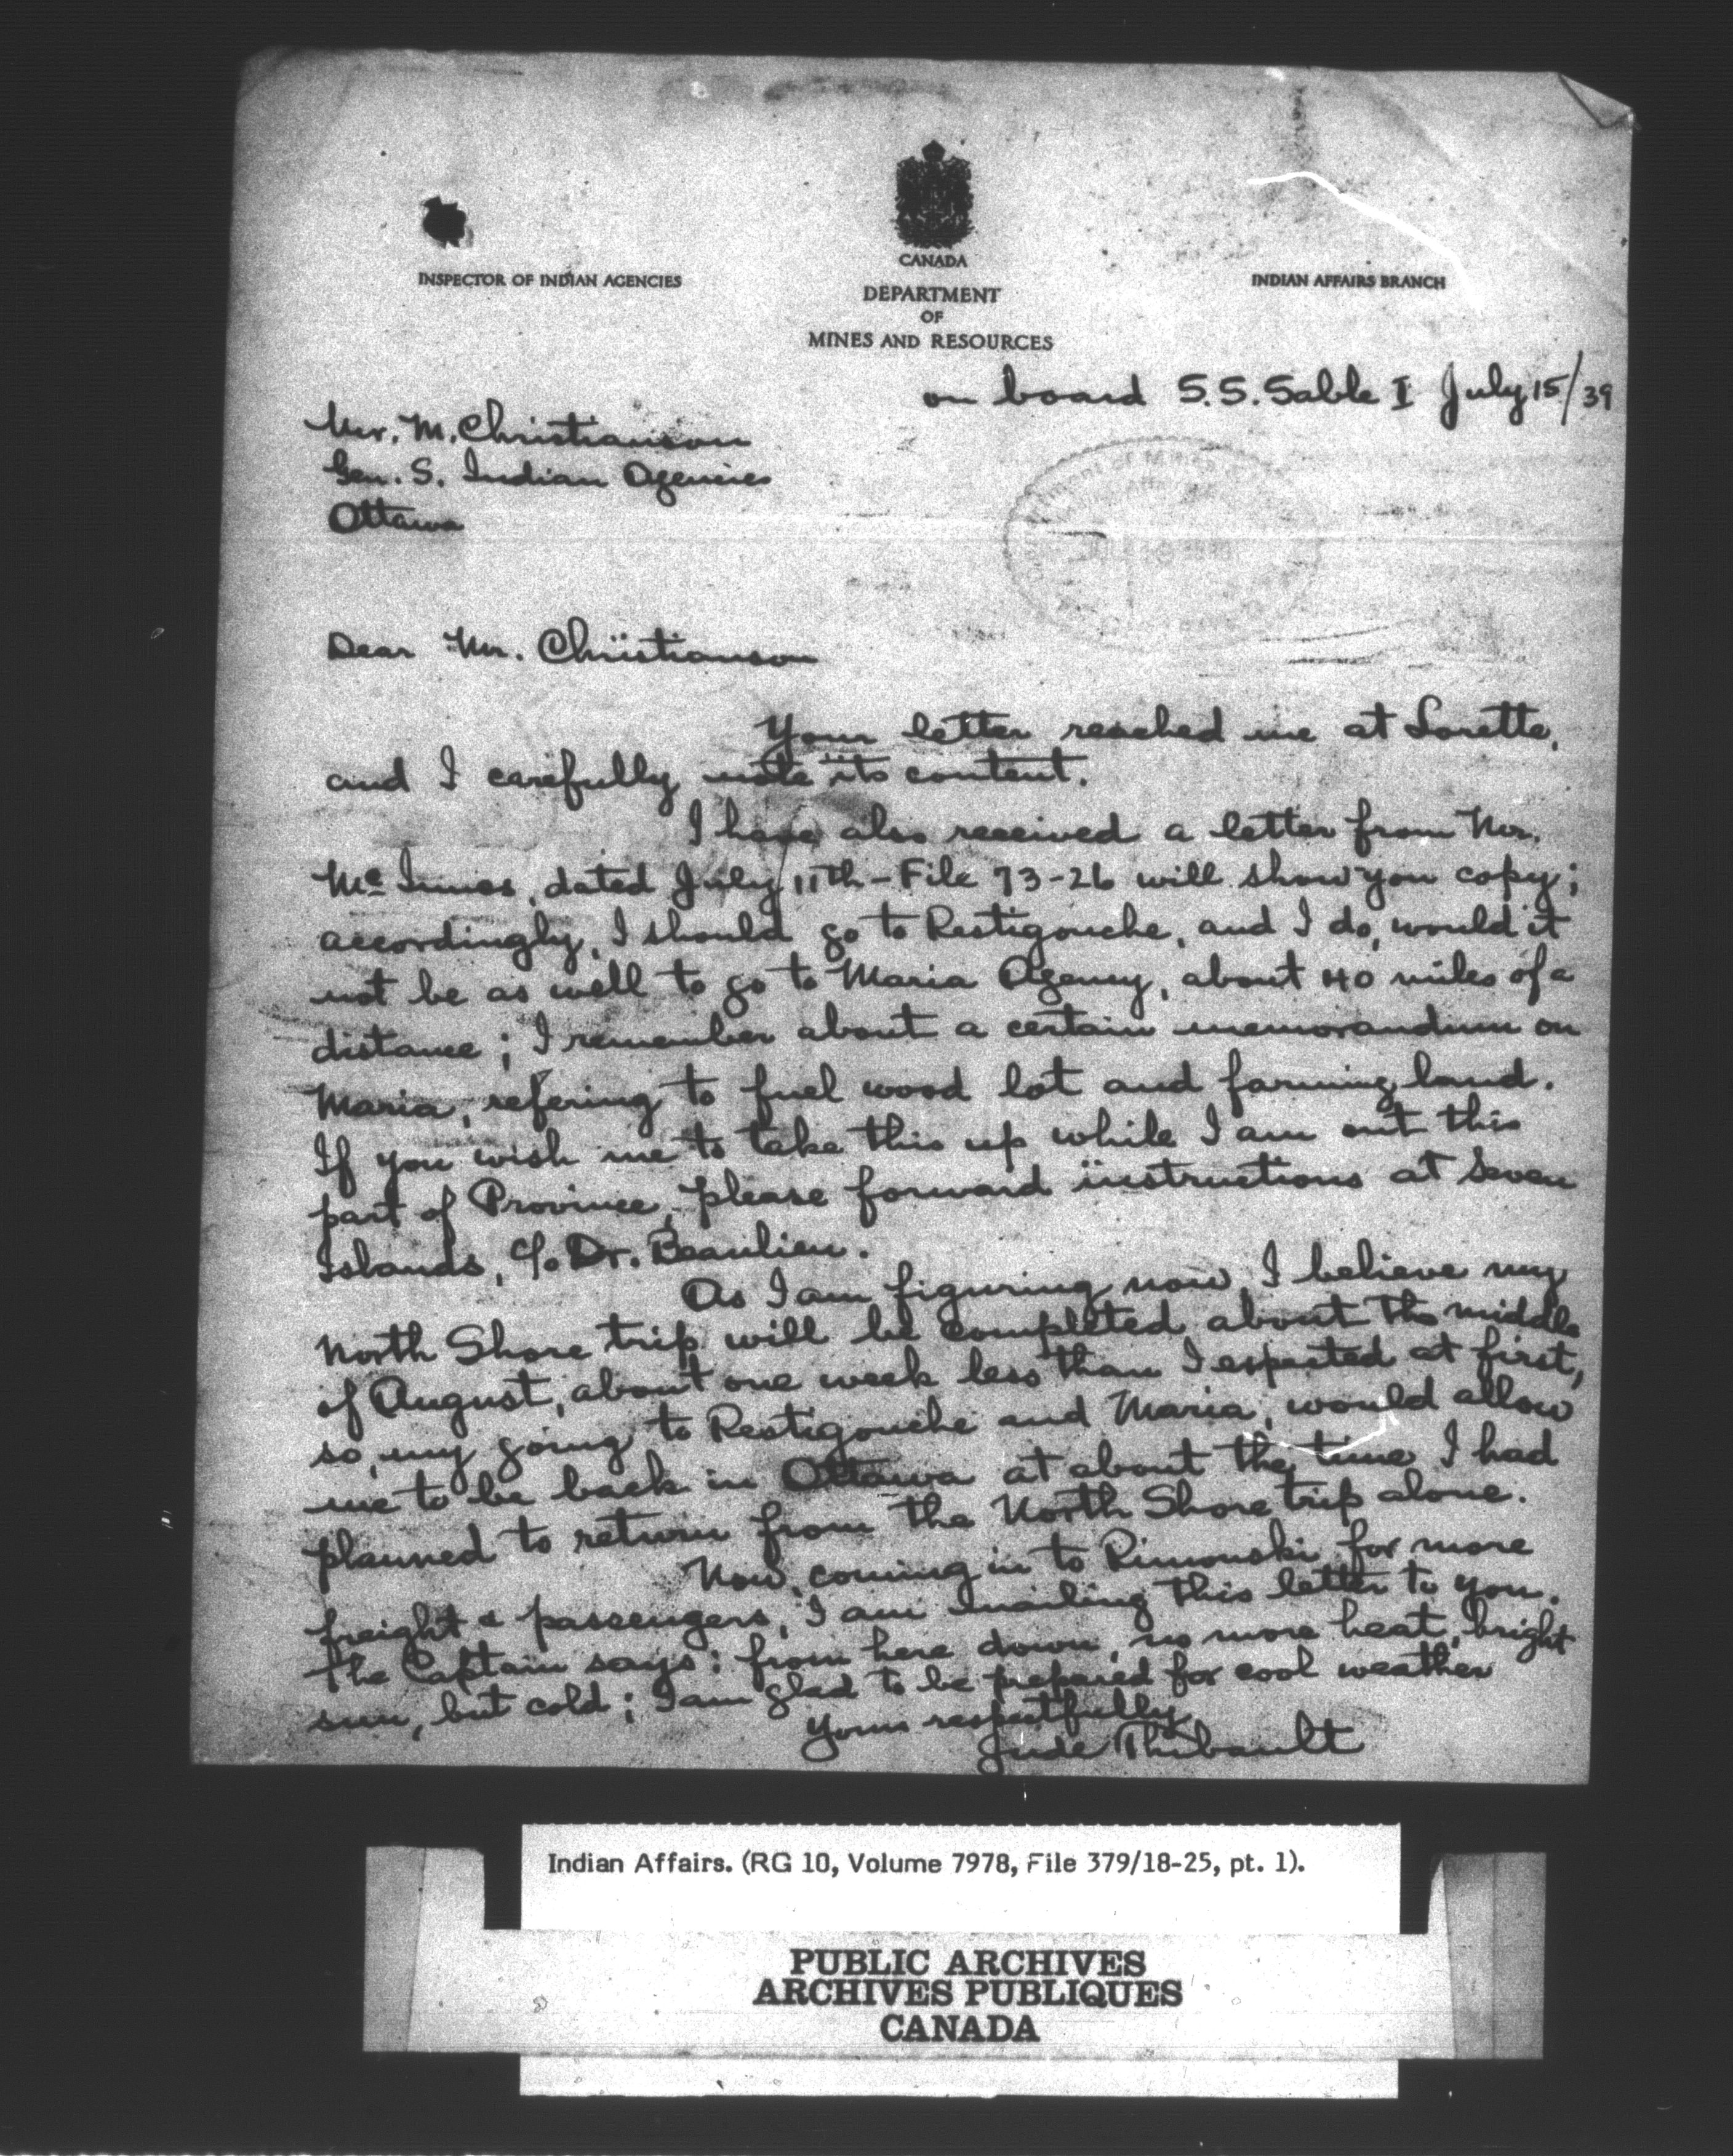 CANADA
INSPECTOR OF INDIAN AGENCIES
INDIAN AFFAIRS BRANCH
DEPARTMENT
OF
MINES AND RESOURCES
on board S.S. Sable I July 15/39
Mr. M. Christianson
Gen. S. Indian Agencies
Ottawa
Dear Mr. Christianson
Your letter reached me at Lorette,
and I carefully note its content.
I have also received a letter from Mr.
Mc Innes, dated July 11th - File 73-26 will show you copy;
accordingly, I should go to Restigouche, and I do, would it
not be as well to go to Maria Agency, about 40 miles of a
distance; I remember about a certain memorandum on
Maria, refering to fuel wood lot and farming land.
If you wish me to take this up while I am out this
part of Province, please forward instructions at Seven
Islands, c/o Dr. Beaulieu.
As I am figuring now, I believe my
North Shore trip will be completed about the middle
of August, about one week less than I expected at first,
so, my going to Restigouche and Maria, would allow
me to be back in Ottawa at about the time I had
planned to return from the North Shore trip alone.
Now, coming in to Rimouski for more
freight & passengers, I am mailing this letter to you.
The Captain says: from here down, no more heat, bright
sun, but cold; I am glad to be prepared for cool weather
Yours respectfully
Jude Thibault
Indian Affairs. (RG 10, Volume 7978, File 379/18-25, pt. 1).
PUBLIC ARCHIVES
ARCHIVES PUBLIQUES
CANADA